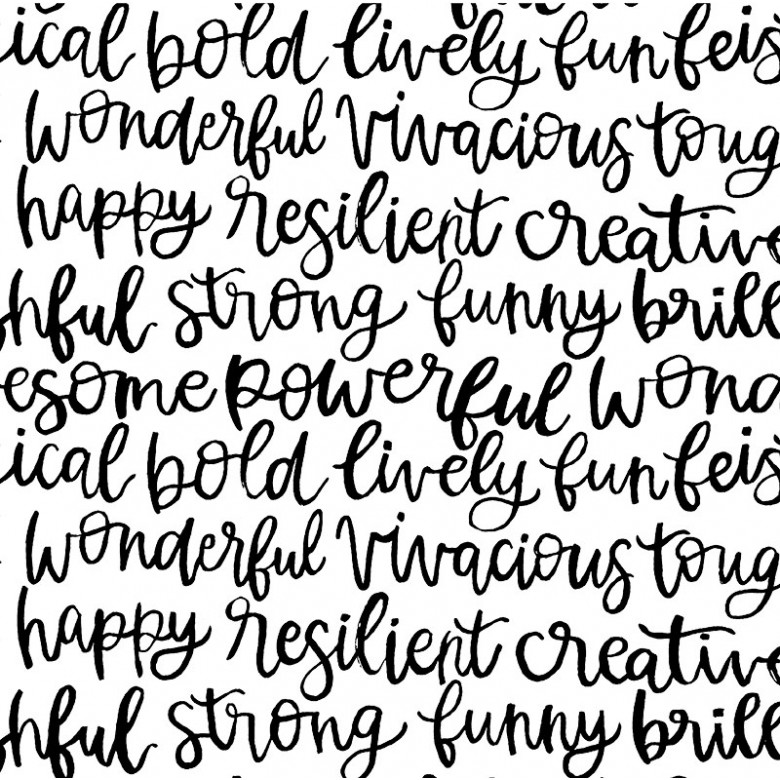 ical bold lively fun feis
wonderful vivacious toug
happy resilient creative
hful strong funny brill
esome powerful wond
ical bold lively fun feis
wonderful vivacious toug
happy resilient creative
hful strong funny brill